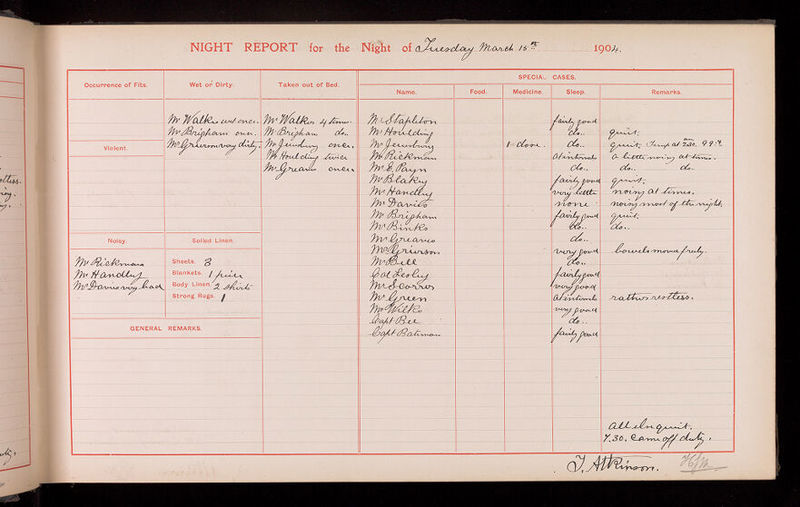 NIGHT REPORT for the Night of Tuesday March 15th 1904.
Occurrence of Fits.
Wet or Dirty.
Taken out of Bed.
SPECIAL CASES.
Name.
Food.
Medicine.
Sleep.
Remarks.
Mr Walker wet once.
Mr Brigham once.
Mr Grierson very dirty.
Mr Walker 4 times.
Mr Brigham do.
Mr Jewsbury once.
Mr Houlding twice
Mr Greaves once.
Violent.
Noisy.
Mr Rickman
Mr Handley
Mr Davies very bad
Soiled Linen.
Sheets. 3
Blankets. 1 piece
Body Linen. 2 shirts
Strong Rugs. 1
GENERAL REMARKS.
Mr Stapleton fairly good
Mr Houlding do. quiet.
Mr Jewsbury 1 dose. do. quiet. Temp at 7.30 am 99.
Mr Rickman at intervals a little noisy at times.
Mr E. Payn do. do. do.
Mr Blakey fairly good quiet.
Mr Handley very little noisy at times.
Mr Davies none noisy most of the night.
Mr Brigham fairly good quiet.
Mr Binks do. do.
Mr Greaves do.
Mr Grierson very good bowels moved freely.
Mr Bell do.
Col Lesley fairly good
Mr Scorror very good
Mr Green at intervals rather restless.
Mr Wilks very good
Capt Bee do.
Capt Bateman fairly good
All else quiet.
7.30. Came off duty.
J. Atkinson.